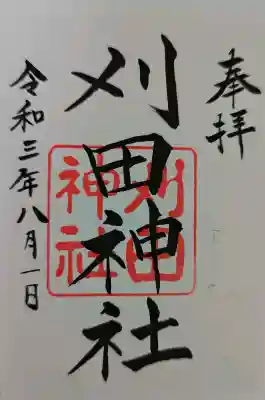 奉拝
刈田神社
刈田
神社
令和三年八月一日